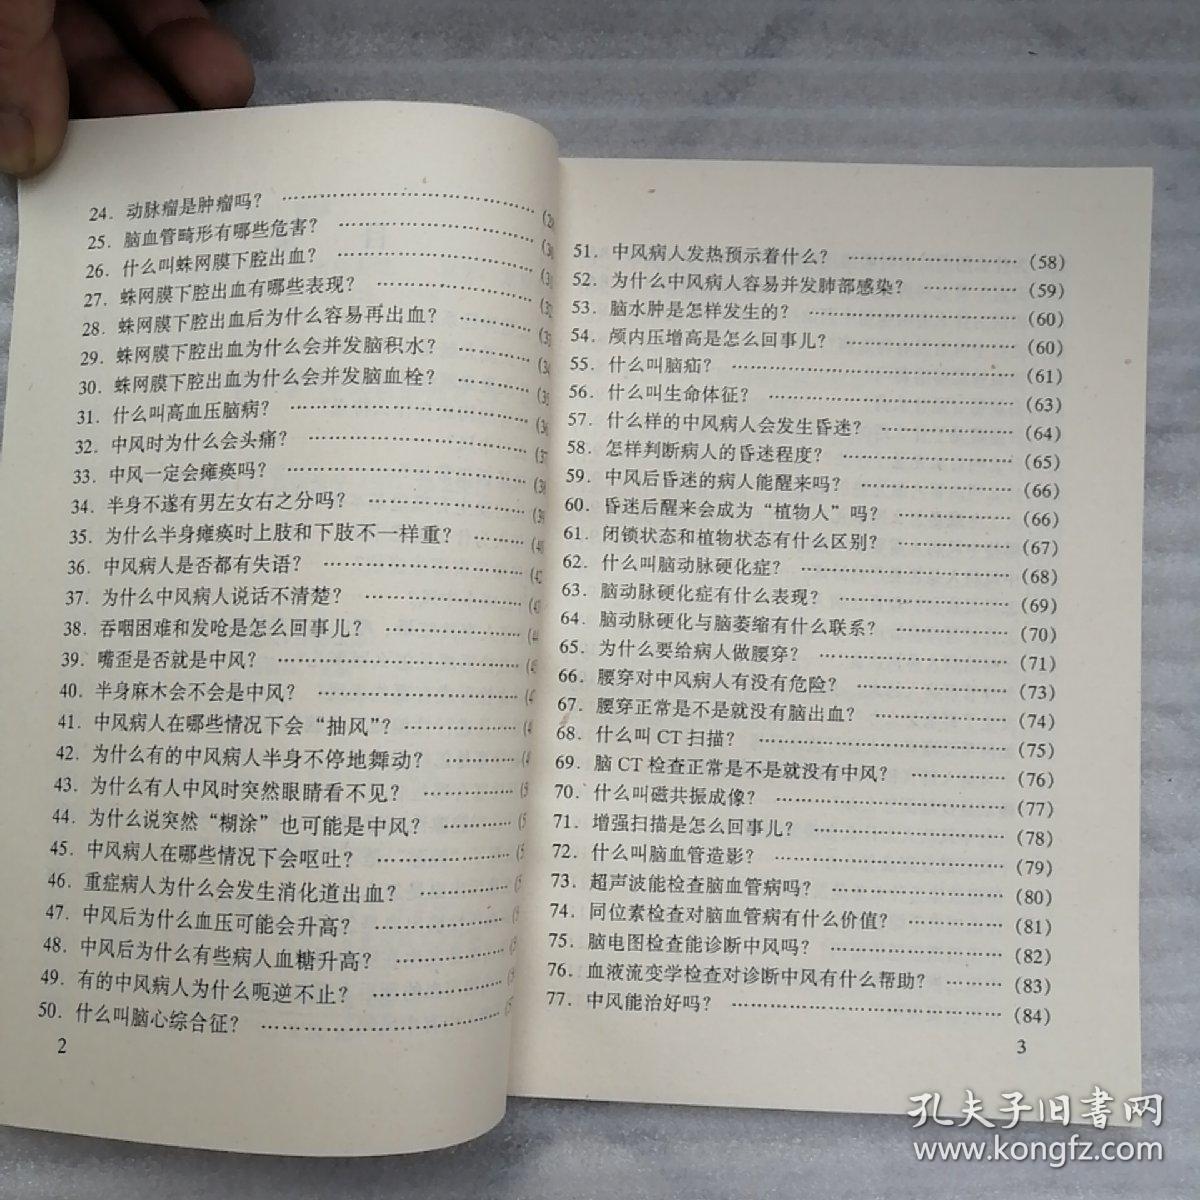 24. 动脉瘤是肿瘤吗? ……………………………… (29
25. 脑血管畸形有哪些危害? ………………………… (30
26. 什么叫蛛网膜下腔出血? ………………………… (31
27. 蛛网膜下腔出血有哪些表现? …………………… (32
28. 蛛网膜下腔出血后为什么容易再出血? ………… (33
29. 蛛网膜下腔出血为什么会并发脑积水? ………… (34
30. 蛛网膜下腔出血为什么会并发脑血栓? ………… (35
31. 什么叫高血压脑病? ……………………………… (36
32. 中风时为什么会头痛? …………………………… (37
33. 中风一定会瘫痪吗? ……………………………… (39
34. 半身不遂有男左女右之分吗? …………………… (39
35. 为什么半身瘫痪时上肢和下肢不一样重? ……… (40
36. 中风病人是否都有失语? ………………………… (42
37. 为什么中风病人说话不清楚? …………………… (43
38. 吞咽困难和发呛是怎么回事儿? ………………… (44
39. 嘴歪是否就是中风? ……………………………… (45
40. 半身麻木会不会是中风? ………………………… (4
41. 中风病人在哪些情况下会“抽风”? ……………… (4
42. 为什么有的中风病人半身不停地舞动? ………… (4
43. 为什么有人中风时突然眼睛看不见? …………… (5
44. 为什么说突然“糊涂”也可能是中风? …………… (5
45. 中风病人在哪些情况下会呕吐? ………………… (5
46. 重症病人为什么会发生消化道出血? …………… (5
47. 中风后为什么血压可能会升高? ………………… (5
48. 中风后为什么有些病人血糖升高? ……………… (5
49. 有的中风病人为什么呃逆不止? ………………… (5
50. 什么叫脑心综合征? ……………………………… (57
2
51. 中风病人发热预示着什么? ……………………… (58)
52. 为什么中风病人容易并发肺部感染? …………… (59)
53. 脑水肿是怎样发生的? …………………………… (60)
54. 颅内压增高是怎么回事儿? ……………………… (60)
55. 什么叫脑疝? ……………………………………… (61)
56. 什么叫生命体征? ………………………………… (63)
57. 什么样的中风病人会发生昏迷? ………………… (64)
58. 怎样判断病人的昏迷程度? ……………………… (65)
59. 中风后昏迷的病人能醒来吗? …………………… (66)
60. 昏迷后醒来会成为“植物人”吗? ………………… (66)
61. 闭锁状态和植物状态有什么区别? ……………… (67)
62. 什么叫脑动脉硬化症? …………………………… (68)
63. 脑动脉硬化症有什么表现? ……………………… (69)
64. 脑动脉硬化与脑萎缩有什么联系? ……………… (70)
65. 为什么要给病人做腰穿? ………………………… (71)
66. 腰穿对中风病人有没有危险? …………………… (73)
67. 腰穿正常是不是就没有脑出血? ………………… (74)
68. 什么叫 CT 扫描? ………………………………… (75)
69. 脑 CT 检查正常是不是就没有中风? …………… (76)
70. 什么叫磁共振成像? ……………………………… (77)
71. 增强扫描是怎么回事儿? ………………………… (78)
72. 什么叫脑血管造影? ……………………………… (79)
73. 超声波能检查脑血管病吗? ……………………… (80)
74. 同位素检查对脑血管病有什么价值? …………… (81)
75. 脑电图检查能诊断中风吗? ……………………… (82)
76. 血液流变学检查对诊断中风有什么帮助? ……… (83)
77. 中风能治好吗? …………………………………… (84)
3
孔夫子旧书网
www.kongfz.com